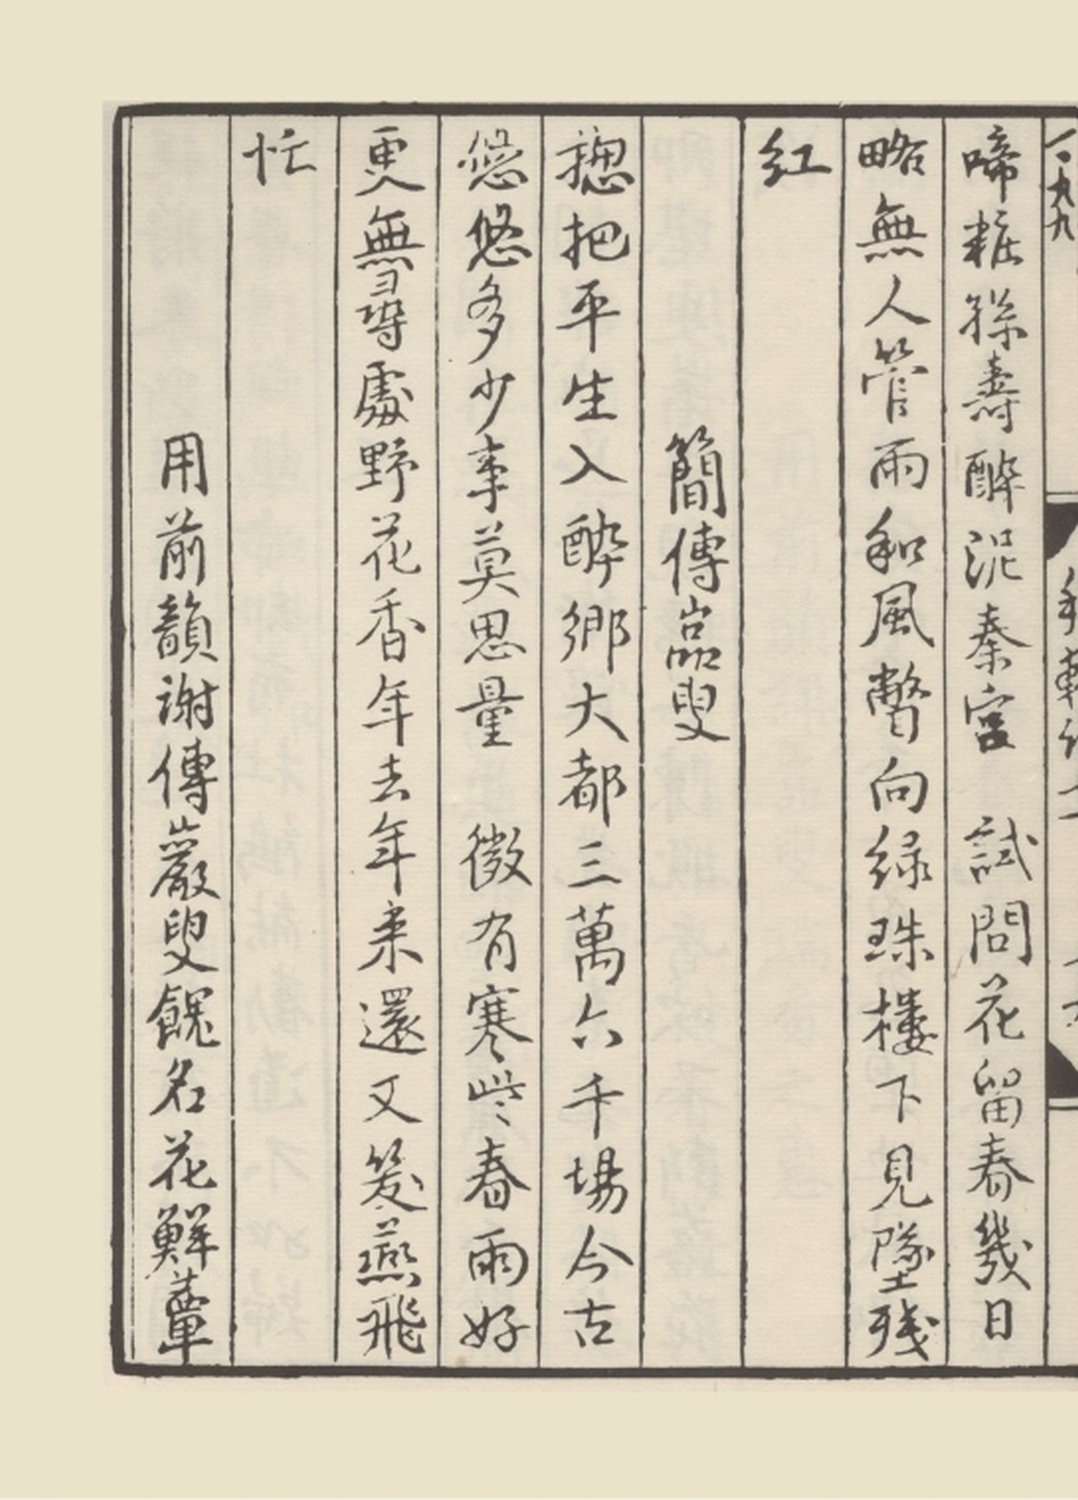 啼粧孫壽醉泥秦宮　試問花留春幾日
略無人管雨和風瞥向緑珠樓下見墜殘
紅
簡傅嵓叟
摠把平生入醉鄉大都三萬六千場今古
悠悠多少事莫思量　微有寒些春雨好
更無尋處野花香年年去年来還又笑燕飛
忙
用前韻謝傅巖叟餽名花鮮蕈